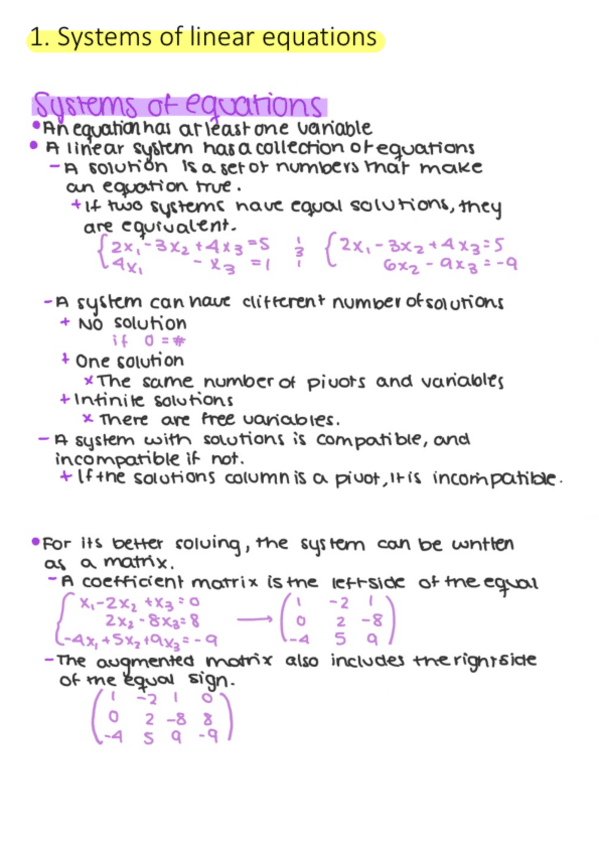 1. Systems of linear equations
Systems of equations
• An equation has at least one variable
• A linear system has a collection of equations
- A solution is a set of numbers that make
an equation true.
+ If two systems have equal solutions, they
are equivalent.
{ 2x₁ - 3x₂ + 4x₃ = 5 ; { 2x₁ - 3x₂ + 4x₃ = 5
4x₁ - x₃ = 1 6x₂ - 9x₃ = -9
- A system can have different number of solutions
+ No solution
if 0 = #
+ One solution
× The same number of pivots and variables
+ Infinite solutions
× There are free variables.
- A system with solutions is compatible, and
incompatible if not.
+ If the solutions column is a pivot, it is incompatible.
• For its better solving, the system can be written
as a matrix.
- A coefficient matrix is the left side of the equal
{ x₁ - 2x₂ + x₃ = 0 → ( 1 -2 1 )
2x₂ - 8x₃ = 8 0 2 -8
-4x₁ + 5x₂ + 9x₃ = -9 -4 5 9
- The augmented matrix also includes the right side
of the equal sign.
( 1 -2 1 0 )
0 2 -8 8
-4 5 9 -9